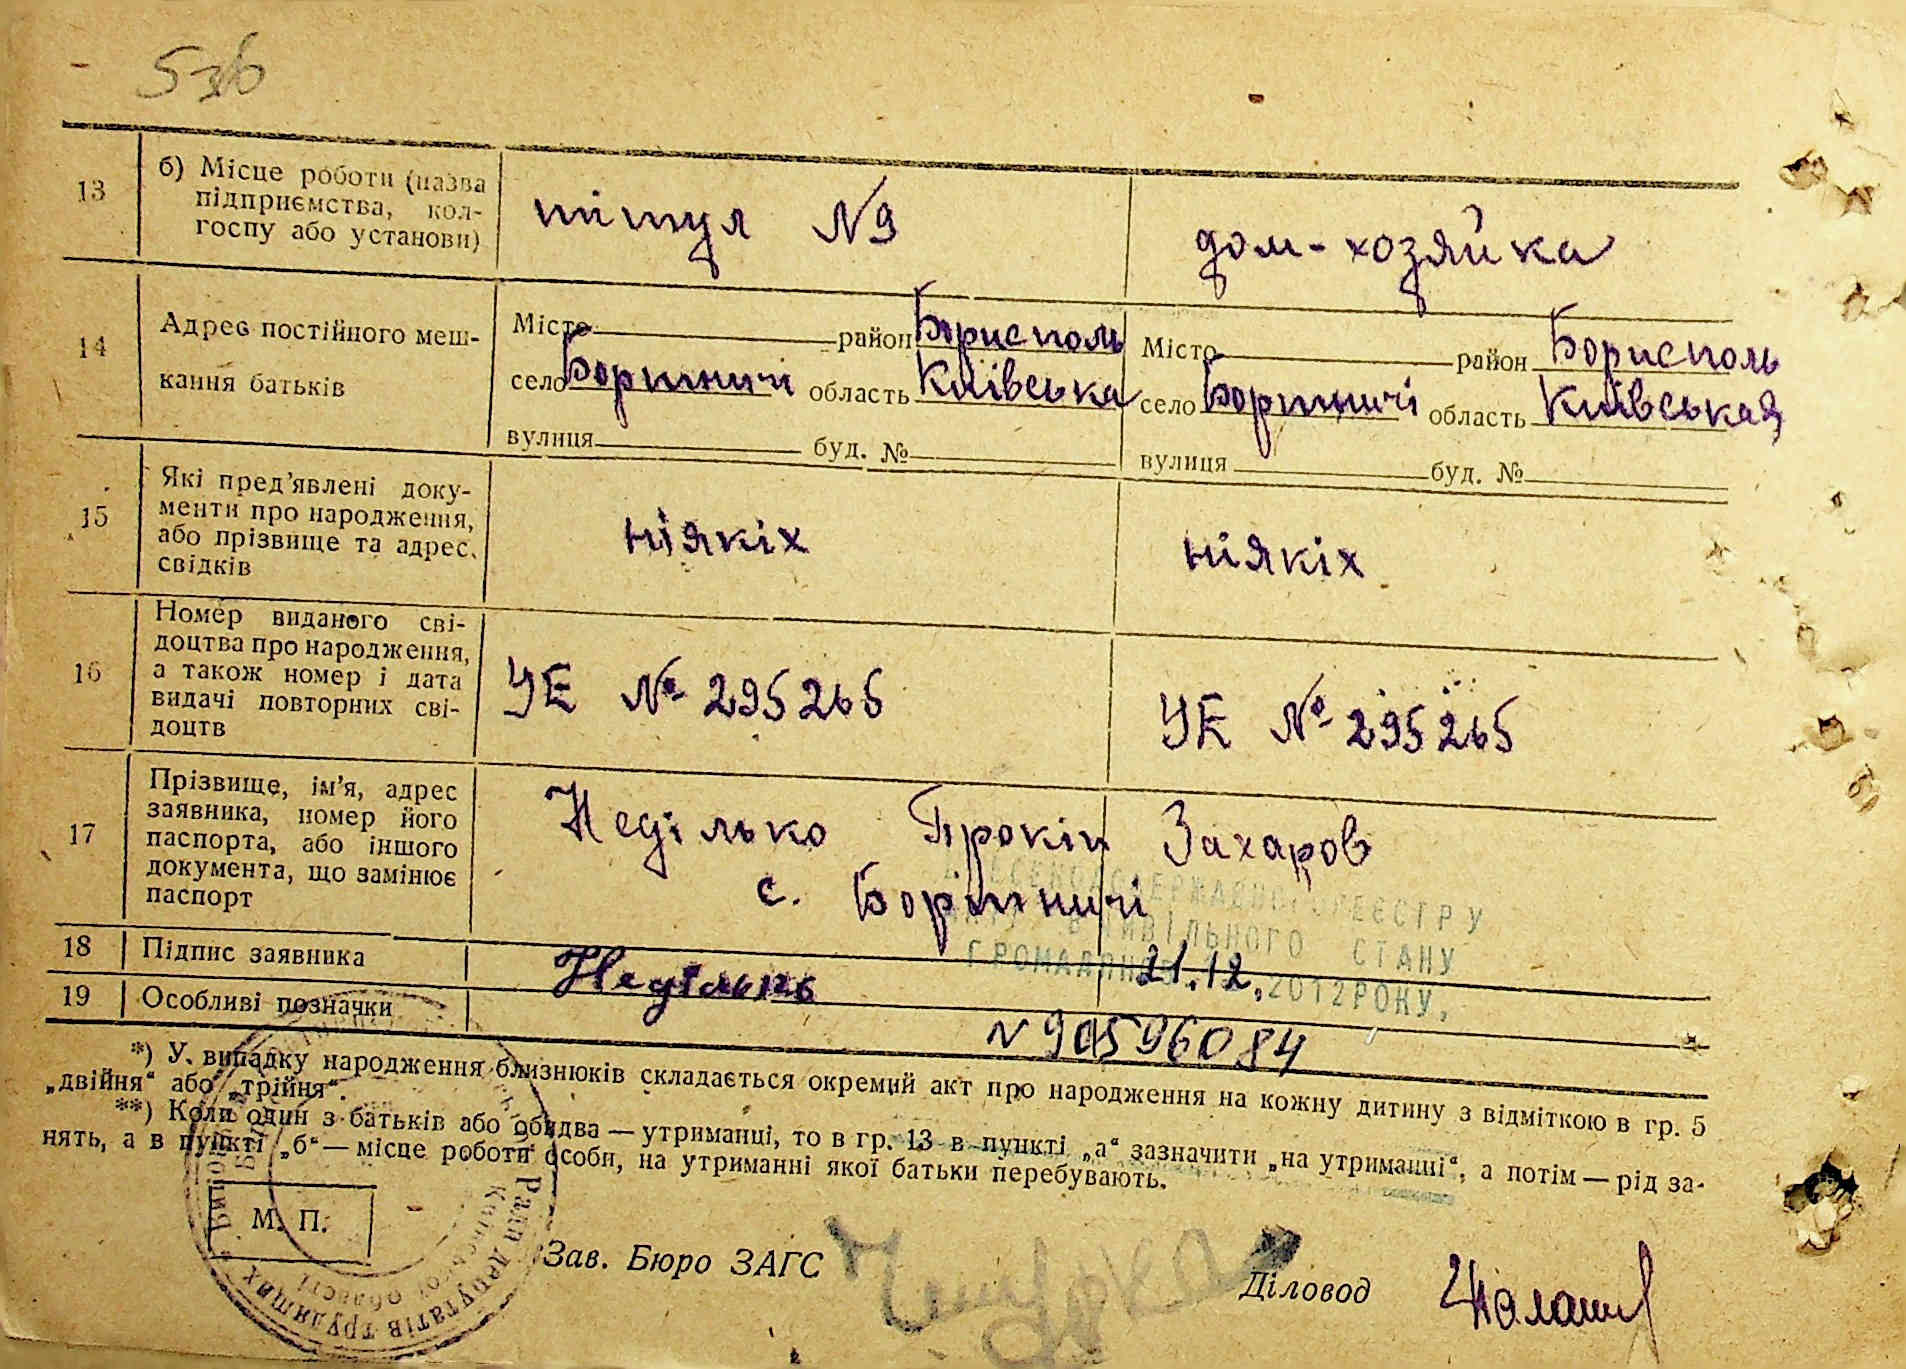 536
13
б) Місце роботи (назва
підприємства, кол-
госпу або установи)
титул №9
дом-хозяйка
14
Адрес постійного меш-
кання батьків
Місто район Борисполь
село Бортничі область Київська
вулиця буд. №
Місто район Борисполь
село Бортничі область Київськая
вулиця буд. №
15
Які пред'явлені доку-
менти про народження,
або прізвище та адрес.
свідків
ніякіх
ніякіх
16
Номер виданого сві-
доцтва про народження,
а також номер і дата
видачі повторних сві-
доцтв
УЕ № 295265
УЕ № 295265
17
Прізвище, ім'я, адрес
заявника, номер його
паспорта, або іншого
документа, що замінює
паспорт
Неділько Прокіп Захаров
с. Бортничі
ДЕРЖАВНОГО РЕЄСТРУ
ЦИВІЛЬНОГО СТАНУ
ГРОМАДЯН 21.12.2012 РОКУ,
18
Підпис заявника
Неділько
19
Особливі позначки
N 90596084
*) У випадку народження близнюків складається окремий акт про народження на кожну дитину з відміткою в гр. 5
„двійня“ або „трійня“.
**) Коли один з батьків або обидва — утриманці, то в гр. 13 в пункті „а“ зазначити „на утриманні“, а потім — рід за-
нять, а в пункті „б“ — місце роботи особи, на утриманні якої батьки перебувають.
М. П.
Ради депутатів трудящих
Київської області
Зав. Бюро ЗАГС
Діловод